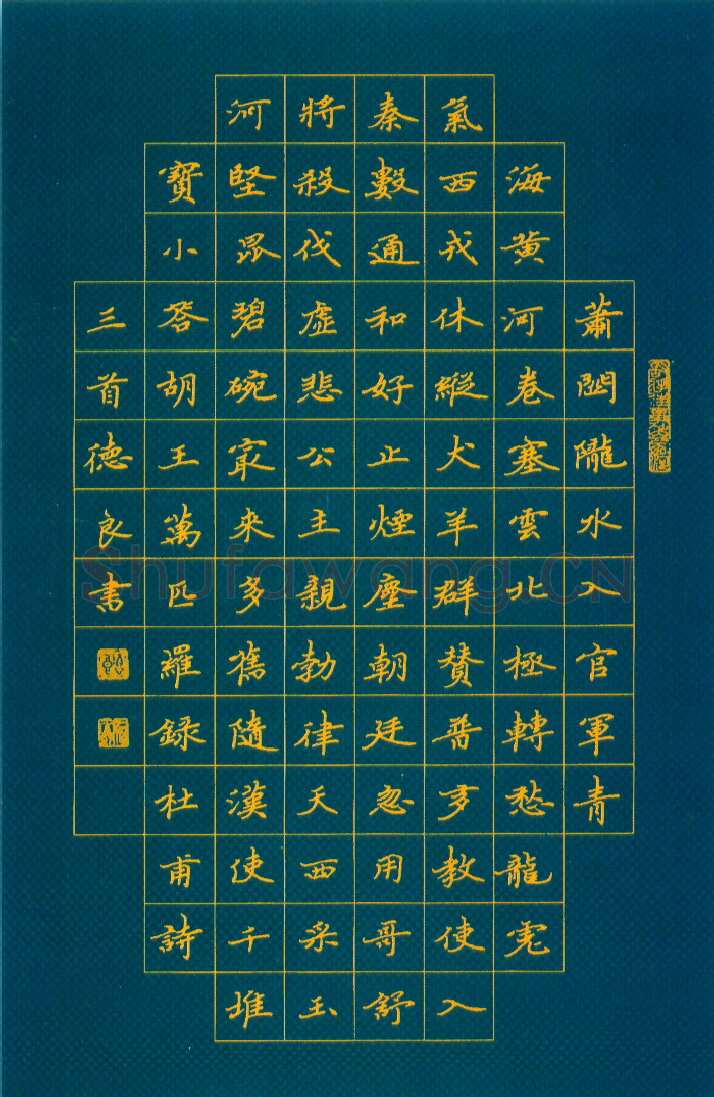 蕭關隴水入官軍青
海黃河卷塞雲北極轉愁龍虎
氣西戎休縱犬羊群贊普多教使入
秦數通和好止煙塵朝廷忽用哥舒
將殺伐虛悲公主親勃律天西采玉
河堅昆碧碗冣來多舊隨漢使千堆
寶小答胡王萬匹羅録杜甫詩
三首德良書
Shufawang.CN